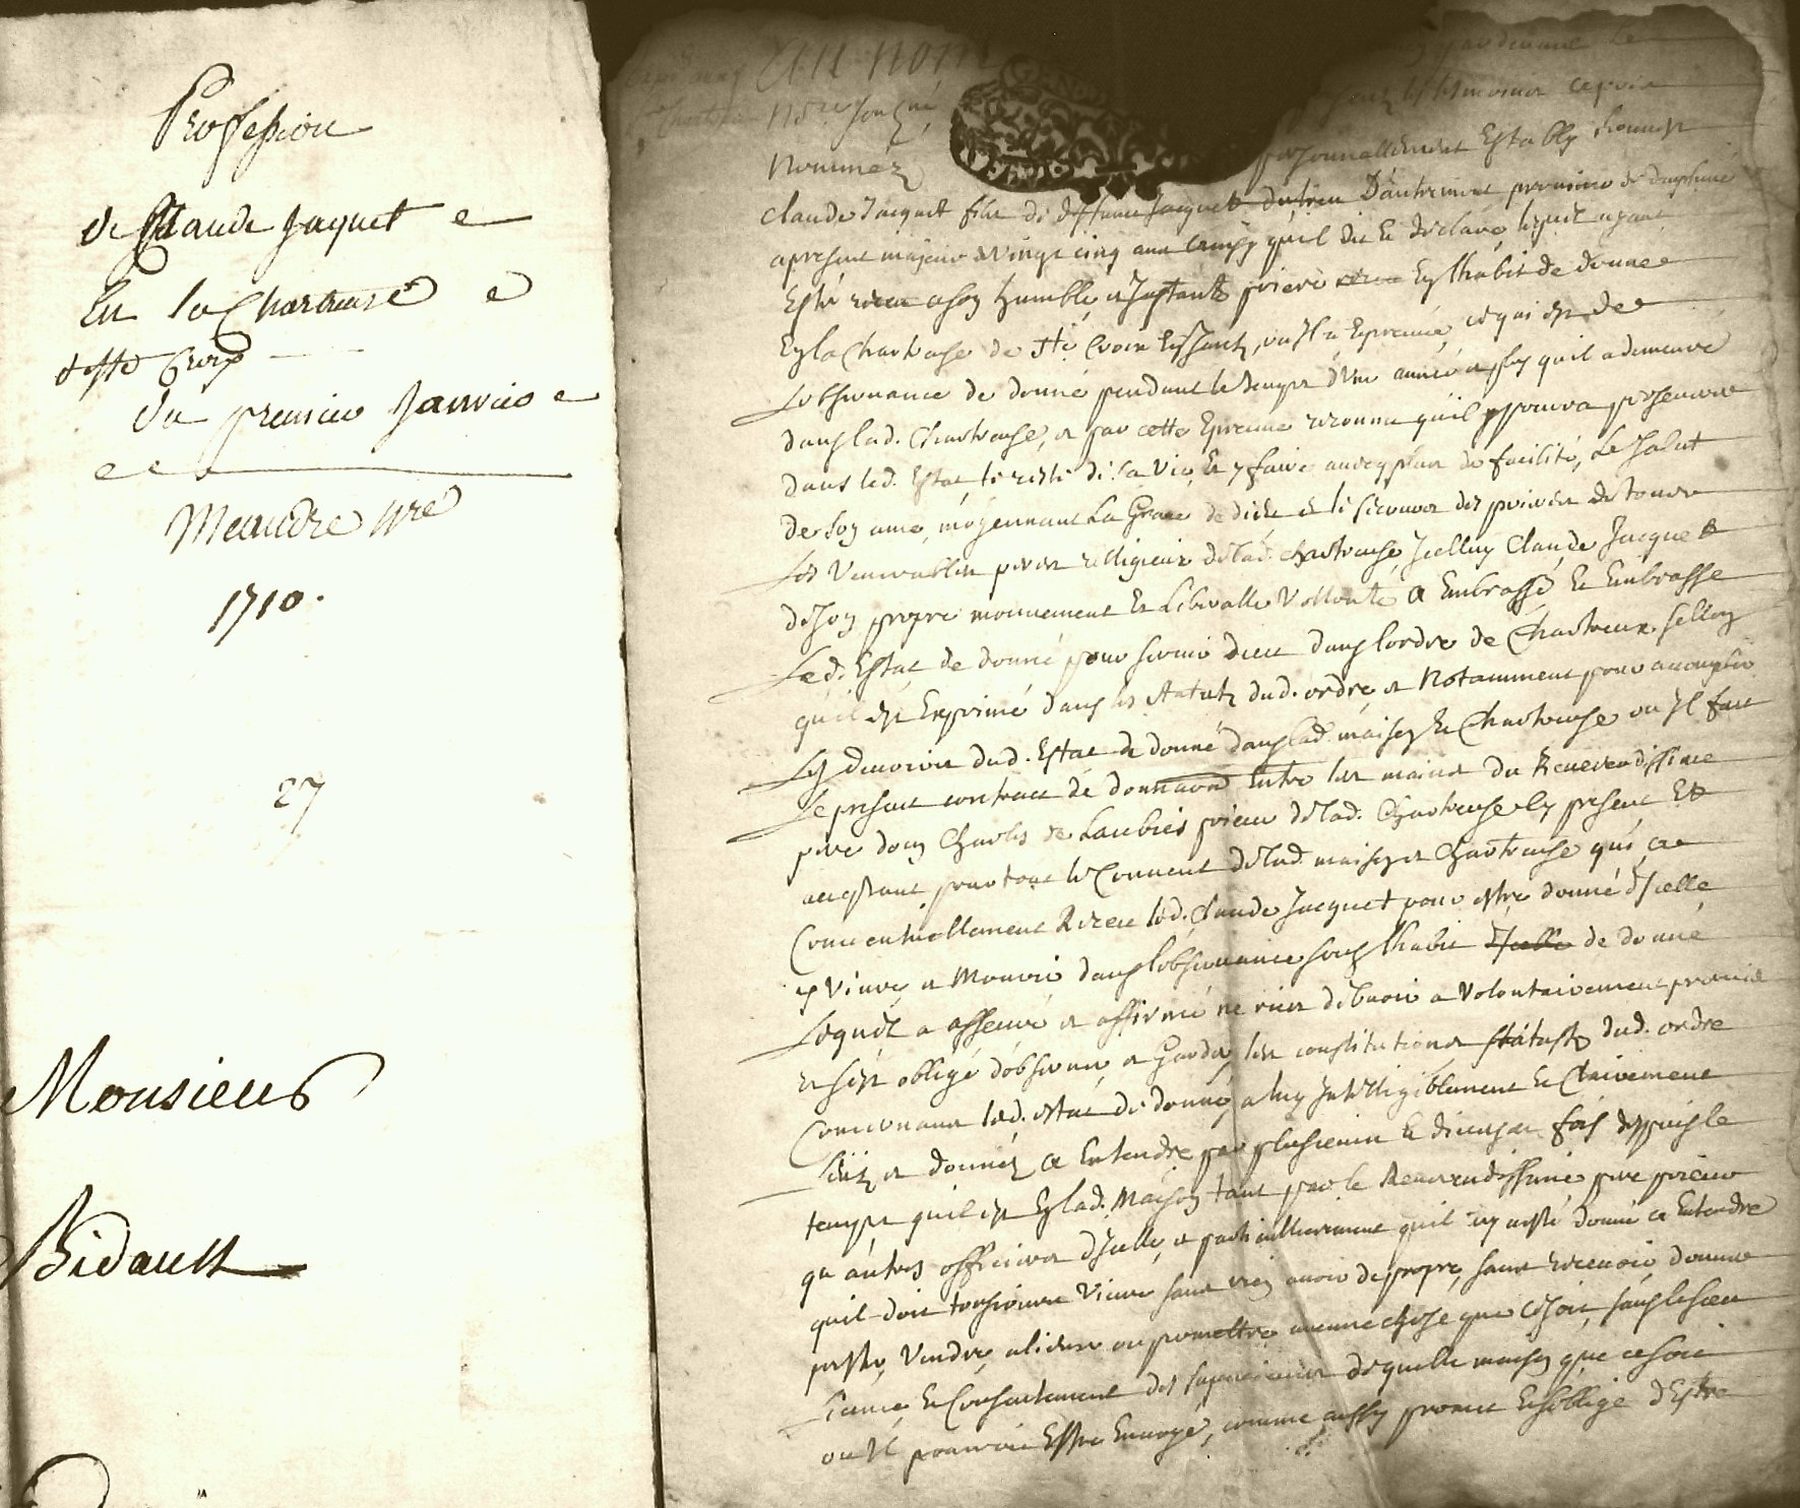 Profession
de Claude Jaquet
En la Chartreuse
de Ste Croix
du premier Janvier
Meandre nre
1710.
27
Monsieur
Bidault
Au nom
pardevant le
Nore soubné
tesmoins cy
Nommés personnellement Estably honneste
Claude Jacquet fils de deffunt Jacquet D'autrement province de dauphiné
apresent majeur de vingt cinq ans Comme qu'il dit et declare, lequel ayant
Esté receu a son humble et Instante priere En lhabit de donné
En la Chartreuse de Ste Croix En Jarez, ou Il a Epreuvé, ce qui est de
Lobservance de donné pendant le temps d'Une année et plus quil a demeuré
dans lad. Chartreuse, et par cette Epreuve reconnu qu'il pourra perseverer
dans led. Estat le reste de sa Vie, et y faire avecq plus de facilité, Le Salut
de son ame, moyennant La Grace de dieu et le secours des prieres de tous
Les Venerables peres relligieux de lad. Chartreuse, Icelluy Claude Jacquet
de son propre mouvement et Liberalle Vollonté a Embrassé et Embrasse
Led. Estat de donné pour servir dieu dans lordre de Chartreux, sellon
qu'il est Exprimé dans les statuts dud. ordre, et Notamment pour accomplir
Les devoirs dud. Estat de donné dans lad. maison et Chartreuse ou Il fait
le present contract de donnation Entre les mains du Reverendissime
pere dom Charles de Laubies prieur de lad. Chartreuse Cy present Et
acceptant pour tout le Convent de lad. maison et Chartreuse qui, a
Conventuellement Receu led. Claude Jacquet pour estre donné d'Icelle
y Vivre, et Mourir dans lobservance sous lhabit d'Icelle de donné
Lequel a asseuré et affirmé ne rien debvoir a Volontairement promis
et s'est obligé d'observer et Garder les constitutions statuts dud. ordre
Concernant led. estat de donné, a luy Intelligiblement et Clairement
Leuz et donnés a Entendre par plusieurs et diverses fois despuis le
temps quil est En lad. Maison tant par le Reverendissime pere prieur
qu'autres officiers d'Icelle, et particullierement quil luy a esté donné a Entendre
quil doit tousjours Vivre sans rien avoir de propre, sans recevoir donner
prester, Vendre, aliener ou promettre aucune chose que ce soit, sans le sceu
Licence et Consentement des superieurs de quelle maison que ce soit
ou Il pourroit Estre Envoyé, comme aussy promet et s'oblige d'Estre